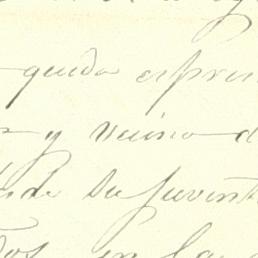 queda espres
y vecino d
de su juvent
dos en la